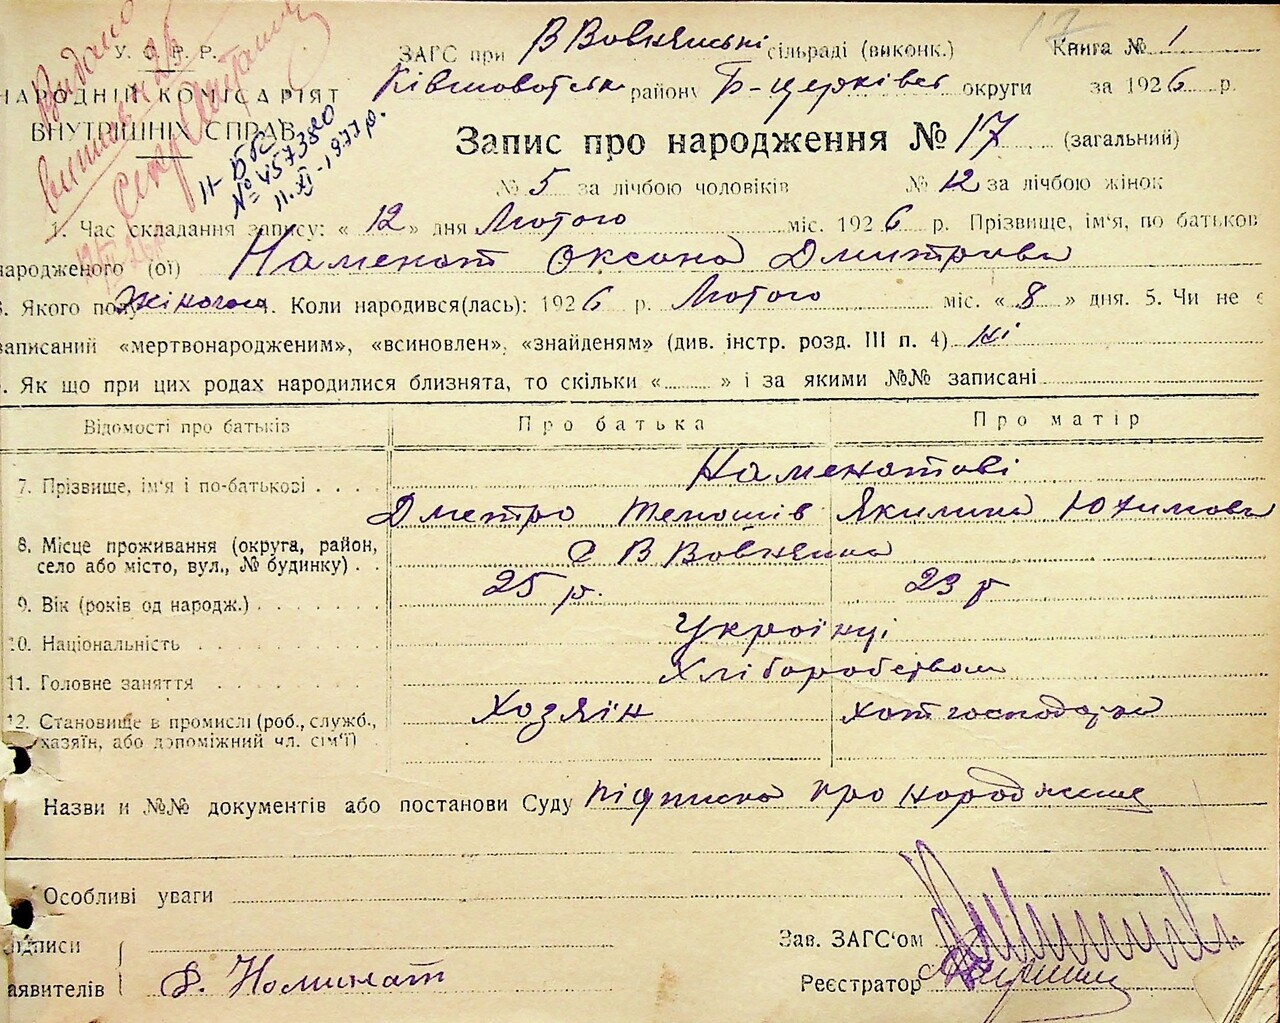 Видано
У. С. Р. Р.
НАРОДНІЙ КОМІСАРІЯТ
ВНУТРІШНІХ СПРАВ
11-БК
№ 4573820
11.XI-1977 р.
17
ЗАГС при В Вовнянські сільраді (виконк.) Книга № 1
району Б-церківсь округи за 1926 р.
Запис про народження № 17 (загальний)
№ 5 за лічбою чоловіків № 12 за лічбою жінок
1. Час складання запису: « 12 » дня Лютого міс. 1926 р. Прізвище, ім'я, по батьков
народженого (ої) Наменат Оксана Дмитрова
3. Якого полу жіночого 4. Коли народився(лась): 1926 р. Лютого міс. « 8 » дня. 5. Чи не є
записаний «мертвонародженим», «всиновлен», «знайденям» (див. інстр. розд. III п. 4) ні
Як що при цих родах народилися близнята, то скільки « » і за якими №№ записані
Відомості про батьків Про батька Про матір
7. Прізвище, ім'я і по-батькові Наменатові
Дметро Якилина Юхимова
8. Місце проживання (округа, район, село або місто, вул., № будинку) с В Вовнянка
9. Вік (років од народж.) 25 р. 23 р
10. Національність Українці
11. Головне заняття Хліборобством
12. Становище в промислі (роб., служб., хазяїн, або допоміжний чл. сім'ї) Хозяін господарка
Назви и №№ документів або постанови Суду підписка про народження
Особливі уваги
Підписи Зав. ЗАГС'ом
заявителів Д. Номинат Реєстратор